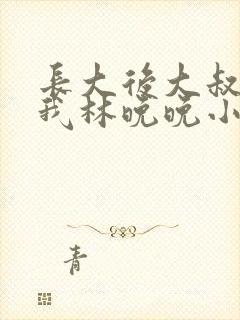 長大後大叔
我林晚晚小
青